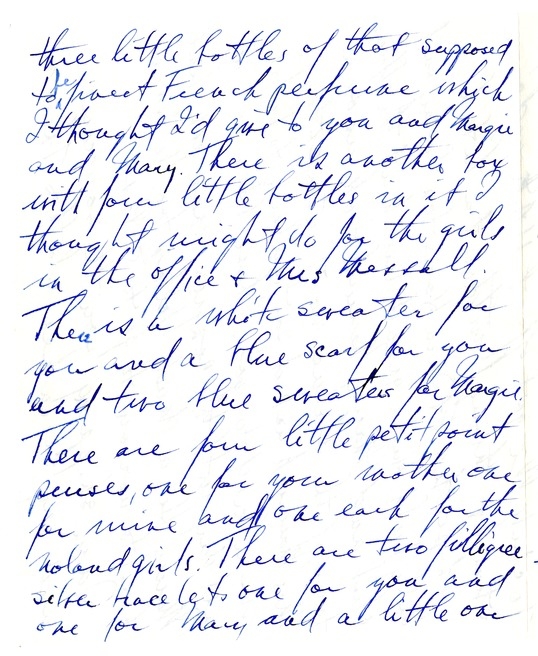 three little bottles of that supposed
to be finest French perfume which
I thought I'd give to you and Margie
and Mary. There is another box
with four little bottles in it I
thought might do for the girls
in the office & Mrs Messall.
There is a white sweater for
you and a blue scarf for you
and two blue sweaters for Margie.
There are four little petit point
purses, one for your mother one
for mine and one each for the
Noland girls. There are two filligree
silver bracelets one for you and
one for Mary and a little one